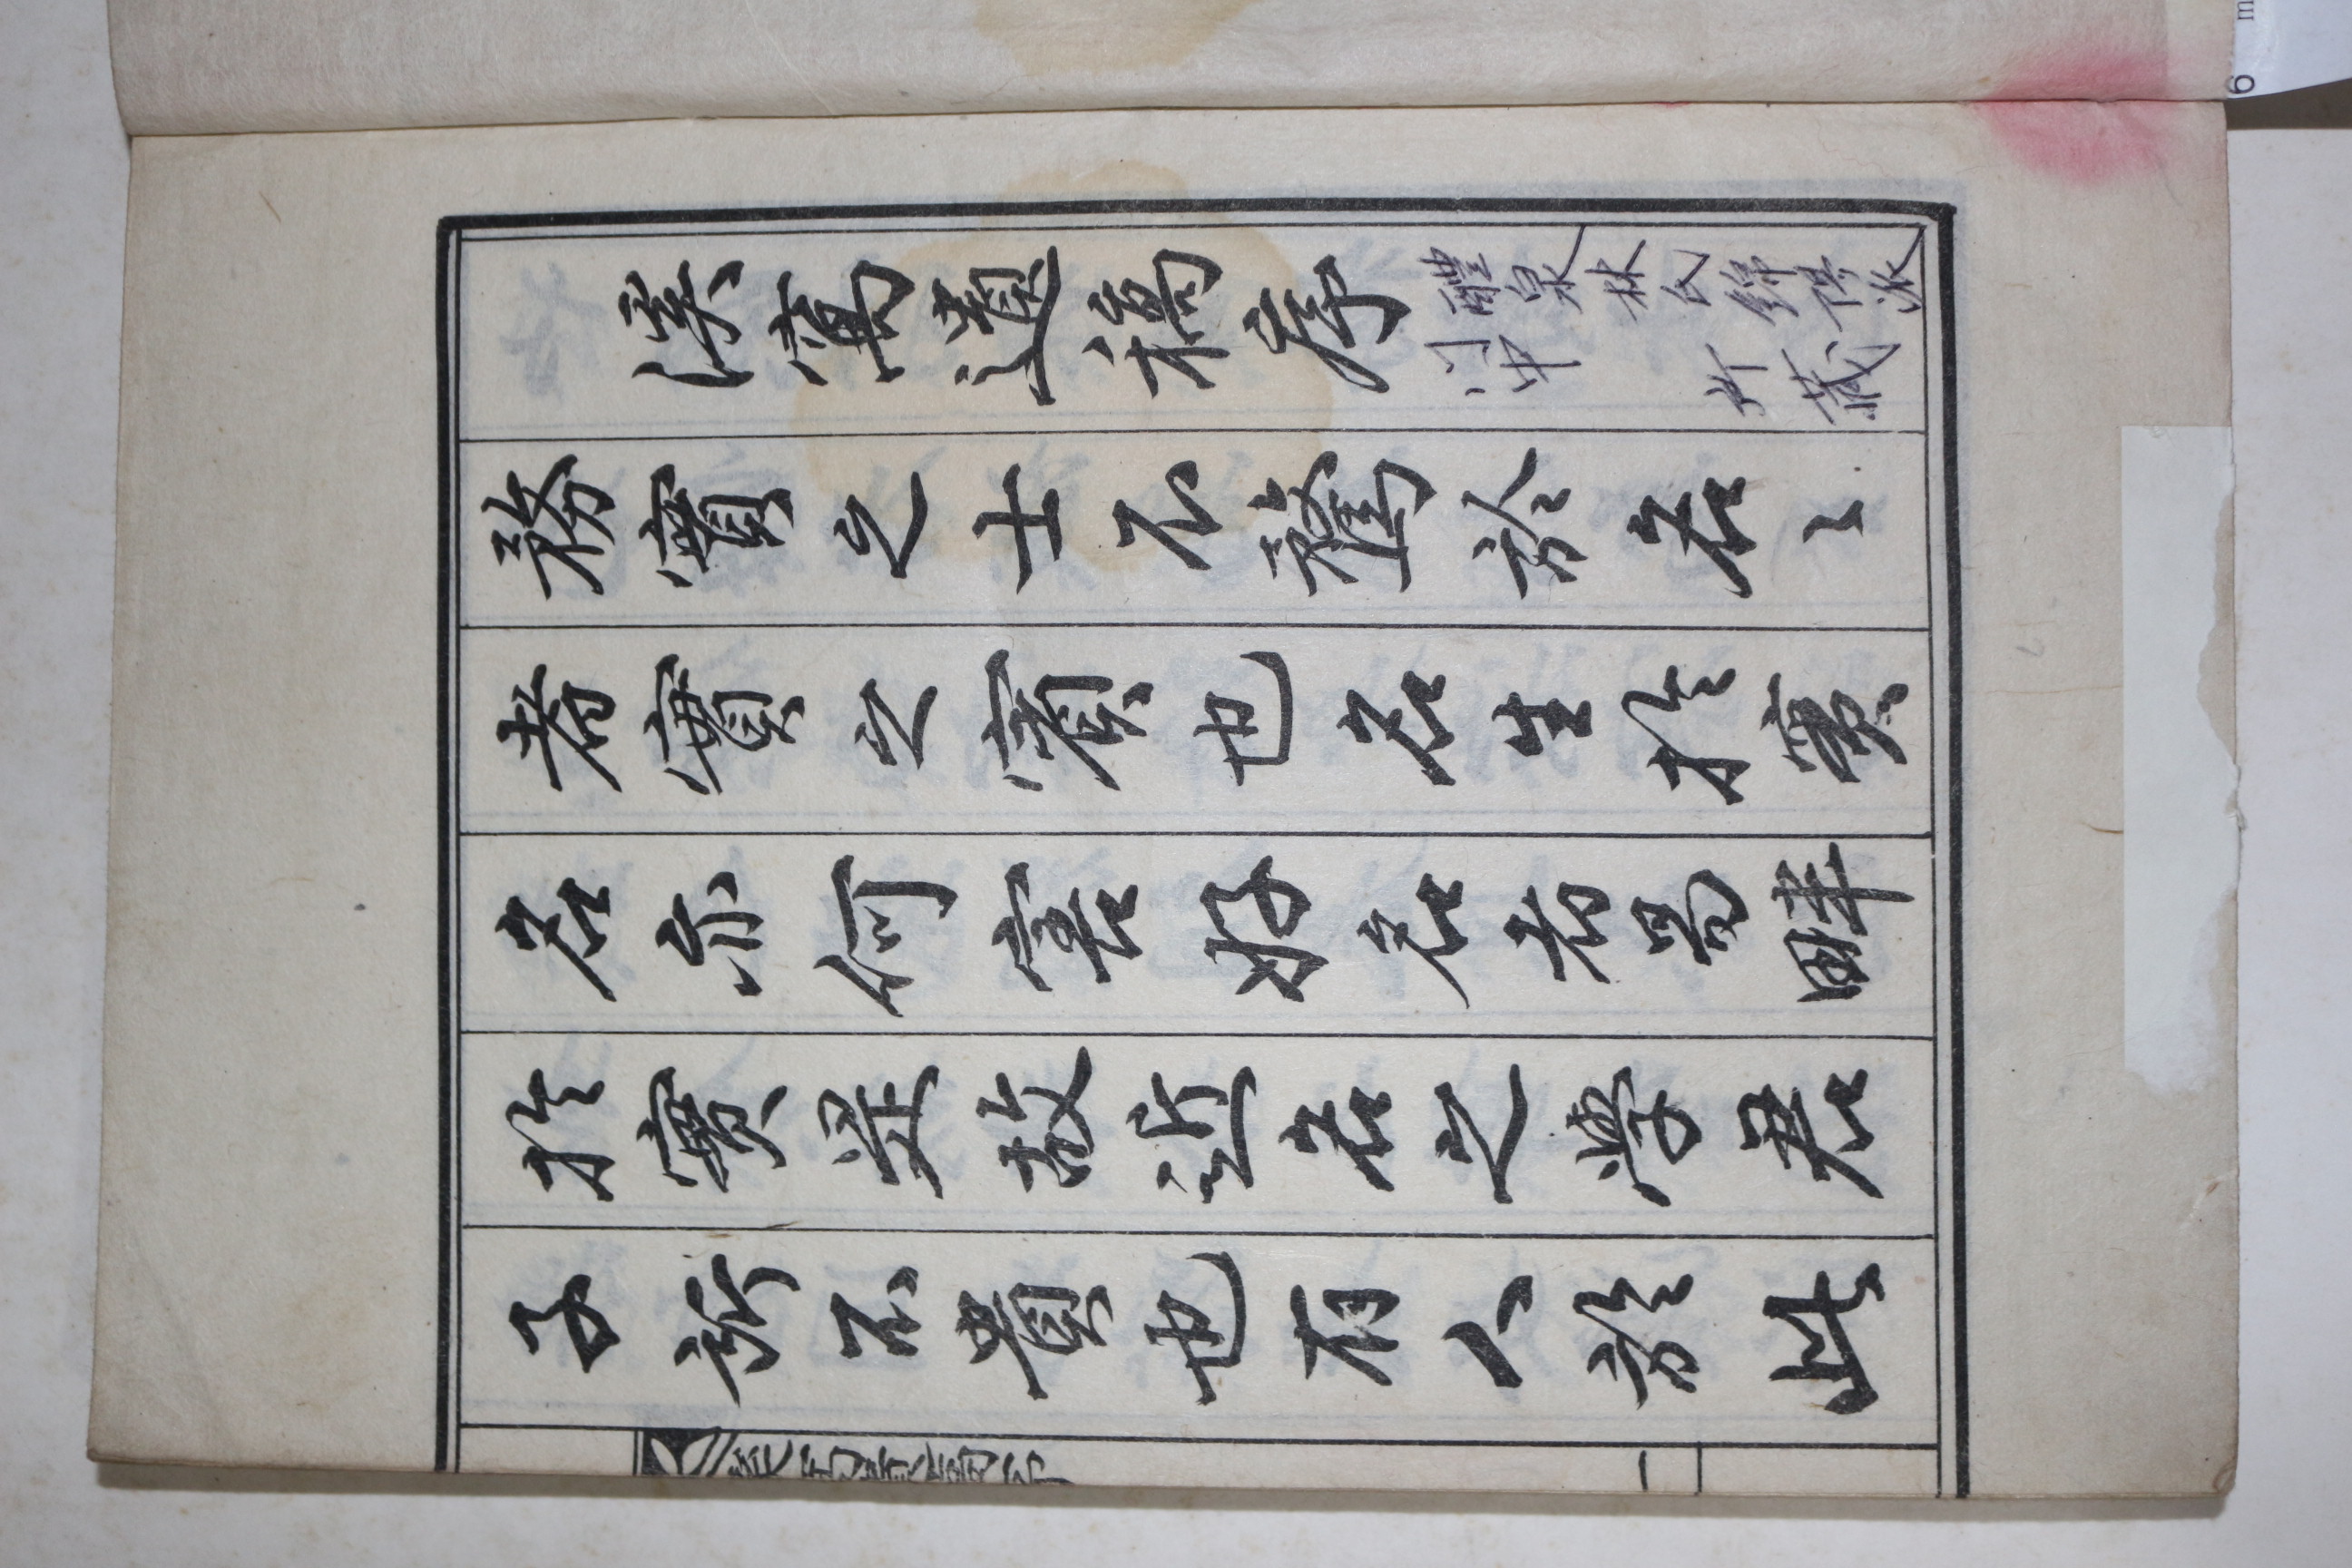 溪窩遺稿序
醴泉林氏錦陽派
门中 所藏
務實之士不騖於名〻
者實之賓也名生於實
名亦何害好名者曷畔
於實是故近名之學君
子所不貴也有人於此
一
6 m